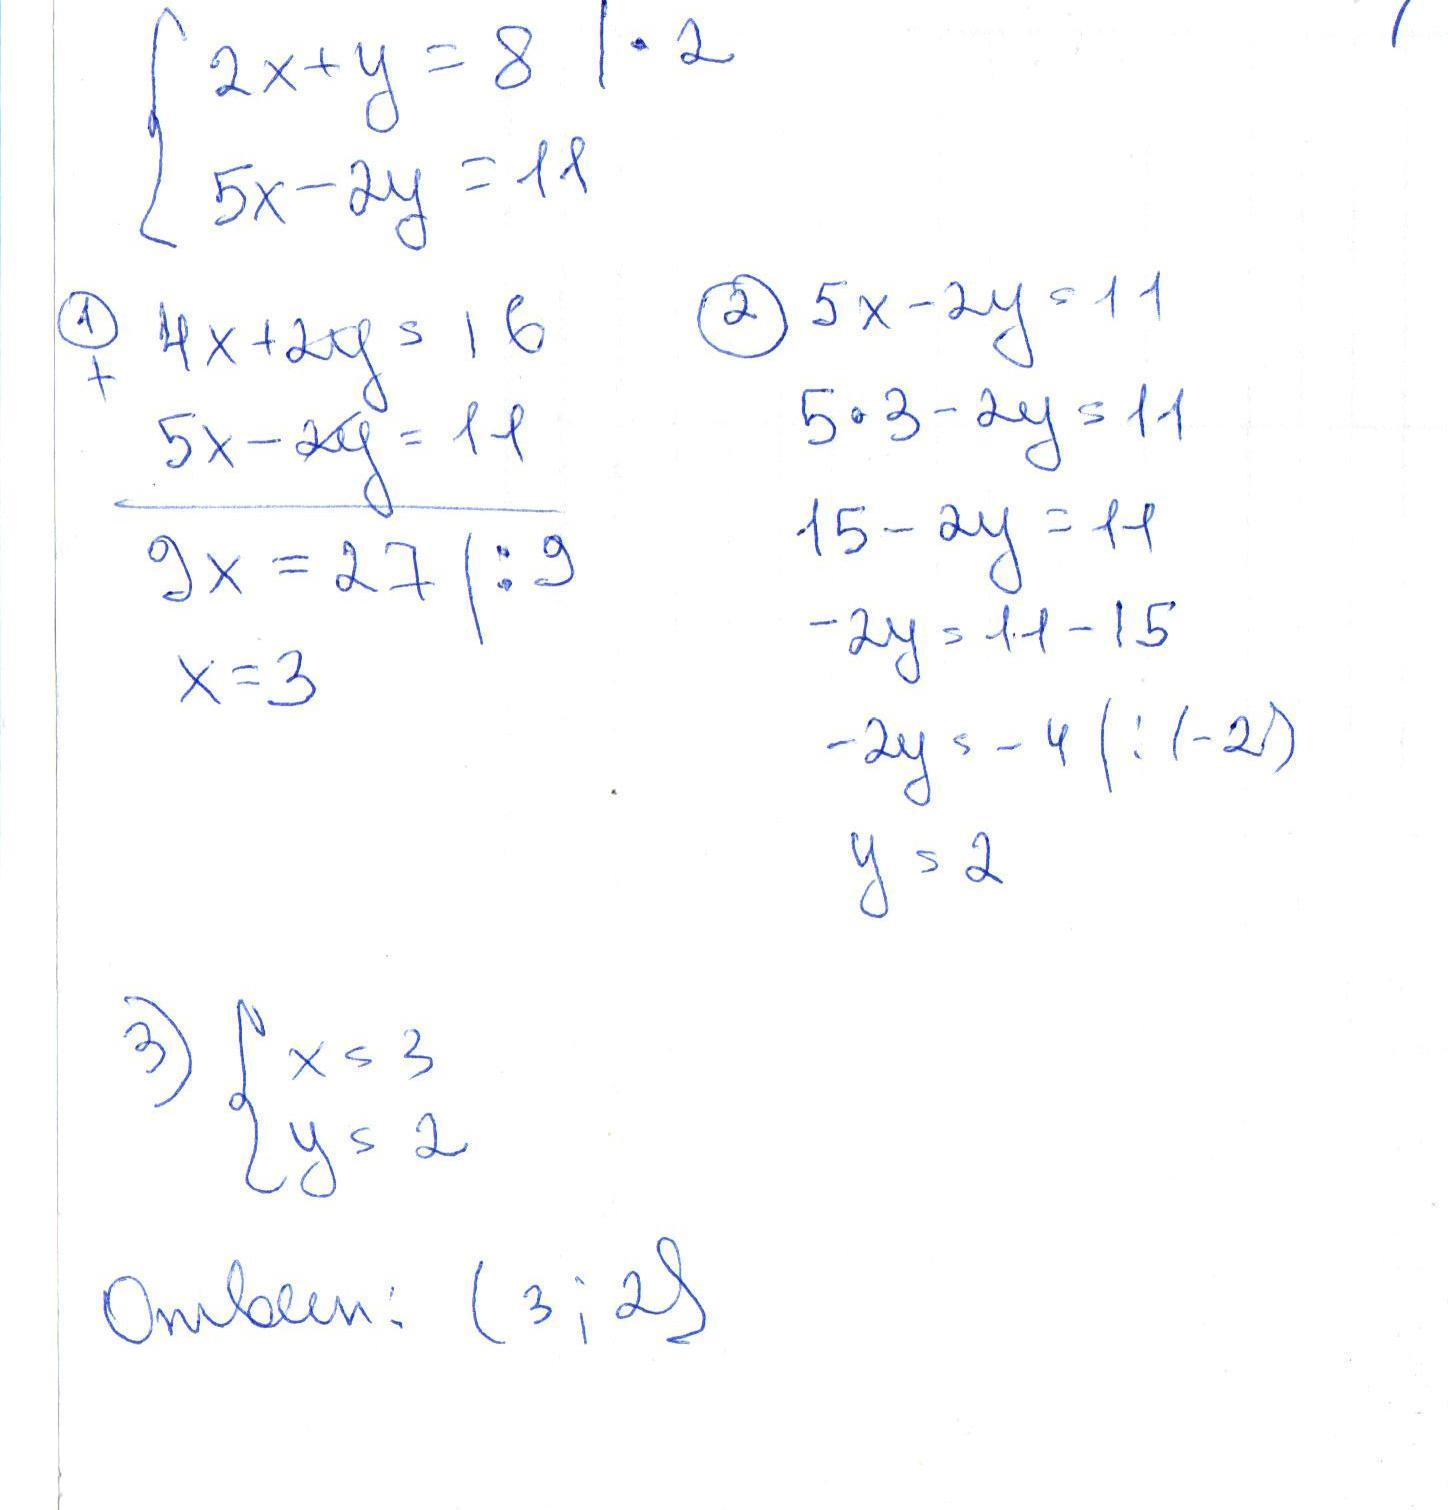 { 2x+y=8 | · 2
5x-2y=11
① 4x+2y=16
+
5x-2y=11
9x=27 | : 9
x=3
② 5x-2y=11
5·3-2y=11
15-2y=11
-2y=11-15
-2y=-4 | : (-2)
y=2
3) { x=3
y=2
Ответ: (3; 2)